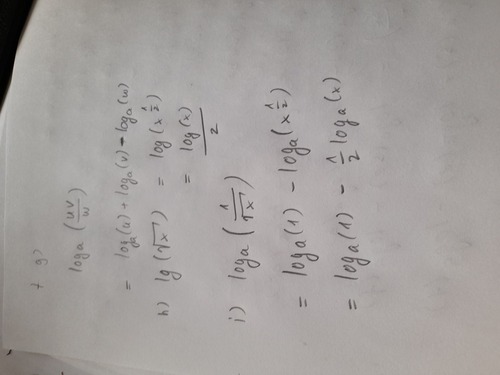 7 g)
logₐ(uv/w)
= logₐ(u) + logₐ(v) - logₐ(w)
h) lg(√x) = log(x^½)
= log(x)/2
i) logₐ(1/√x)
= logₐ(1) - logₐ(x^½)
= logₐ(1) - ½ logₐ(x)